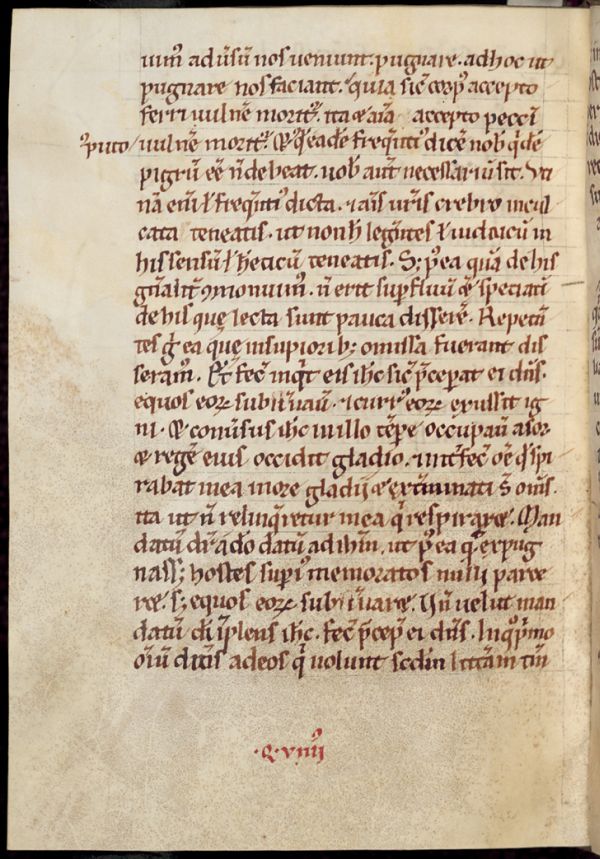 uim᷒ ad usum nos ueniunt. pugnare. ad hoc ut
pugnare nos faciant. quia sic̄ corp᷒ accepto
ferri uuln̄e morit᷒. ita & aīa accepto pecc̄i
puto uuln̄e morit᷒. Et q̄ eadē freq̄nti᷒ dicē nob̄ q̄dē
pigrū eē n̄ debeat. uob̄ aūt necessariū sit. Ut
nā eni ł freq̄nti᷒ dicta. & aīs ur̄is crebro incul
cata teneatis. ut non h̄ legentes ł iudaicū in
his sensū ł h̄eticū teneatis. S; p᷒ea quā de his
gn̄alit̄ ꝯmonuim᷒. n̄ erit sup̄fluū & speciati
de his quę lecta sunt pauca disserē. Repeten
tes g̊ ea quę in supiorib; omissa fuerant dis
seram᷒. Et fec̄ inq̄t eis ih̄c sic̄ p̄cep̄at ei dn̄s.
equos eoꝝ subn̄uauit. & curr᷒ eoꝝ exussit ig
ni. & conuersus ih̄c in illo tēpe occupauit asor
& regē eius occidit gladio. & int̄fec̄ oē q̄d spi
rabat in ea in ore gladii & ext̄minati s̄ om̄s.
ita ut n̄ relinq̄retur in ea q̄ respiraret. Man
datū dr̄ a dō datū ad ihm̄. ut p᷒ea q̄ expug
nass; hostes sup᷒i᷒ memoratos nulli parce
ret. s; equos eoꝝ subn̄uaret. Un̄ uelut man
datū dī īplens ih̄c. fec̄ p̄cep̄ ei dn̄s. In q᷒ p̄mo
oīum dicim᷒ ad eos q̄ uolunt sc̄dm litt̄am tm̄
·Q·VIIII᷒